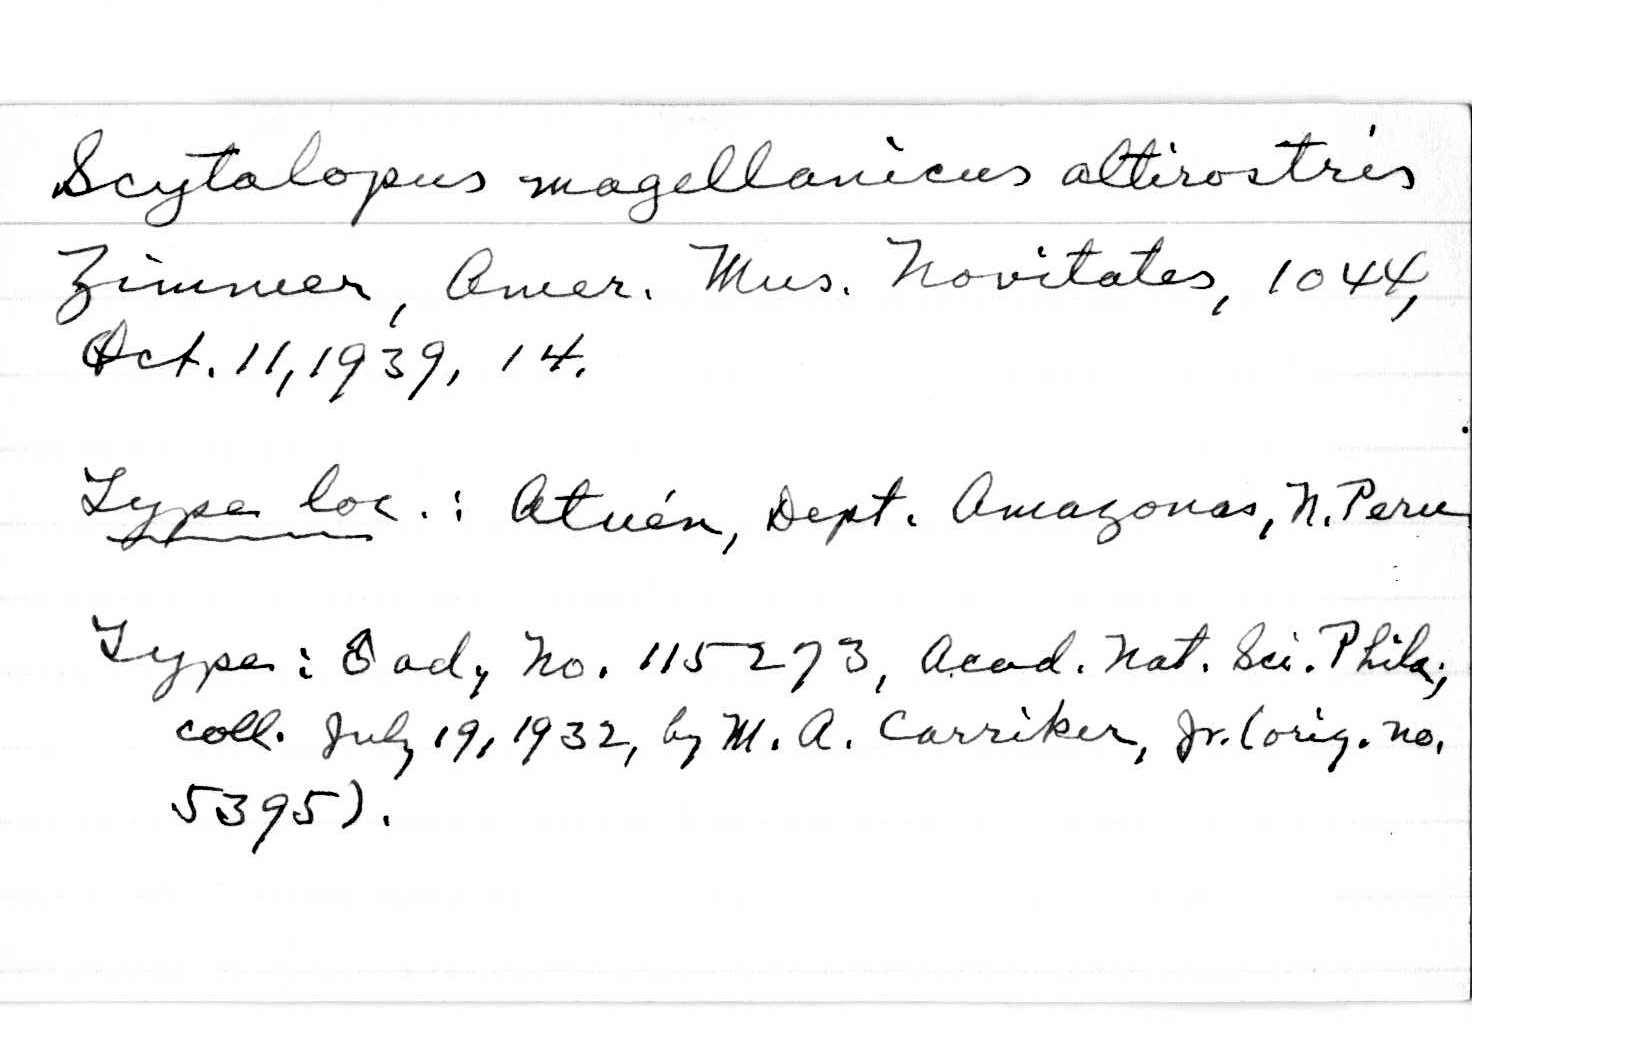 Scytalopus magellanicus altirostris
Zimmer, Amer. Mus. Novitates, 1044,
Oct. 11, 1939, 14.
Type loc.: Atuén, Dept. Amazonas, N. Peru
Type: ad, No. 115273, Acad. Nat. Sci. Phila;
coll. July 19, 1932, by M. A. Carriker, Jr. (orig. no.
5395).